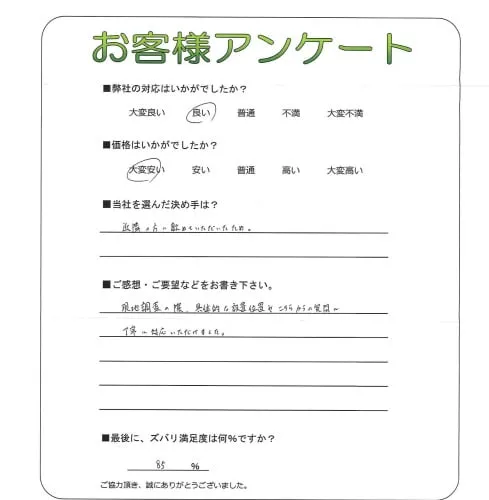 お客様アンケート
■弊社の対応はいかがでしたか？
大変良い 良い 普通 不満 大変不満
■価格はいかがでしたか？
大変安い 安い 普通 高い 大変高い
■当社を選んだ決め手は？
近隣の方に勧めていただいたため。
■ご感想・ご要望などをお書き下さい。
現地調査の際、具体的な設置位置やこちらからの質問に
丁寧に対応いただけました。
■最後に、ズバリ満足度は何％ですか？
85 %
ご協力頂き、誠にありがとうございました。